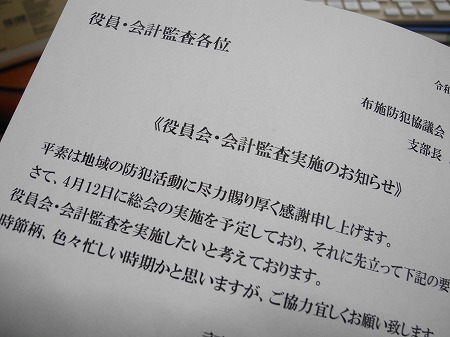 役員・会計監査各位
令和
布施防犯協議会
支部長
《役員会・会計監査実施のお知らせ》
平素は地域の防犯活動に尽力賜り厚く感謝申し上げます。
さて、4月12日に総会の実施を予定しており、それに先立って下記の要
役員会・会計監査を実施したいと考えております。
時節柄、色々忙しい時期かと思いますが、ご協力宜しくお願い致します